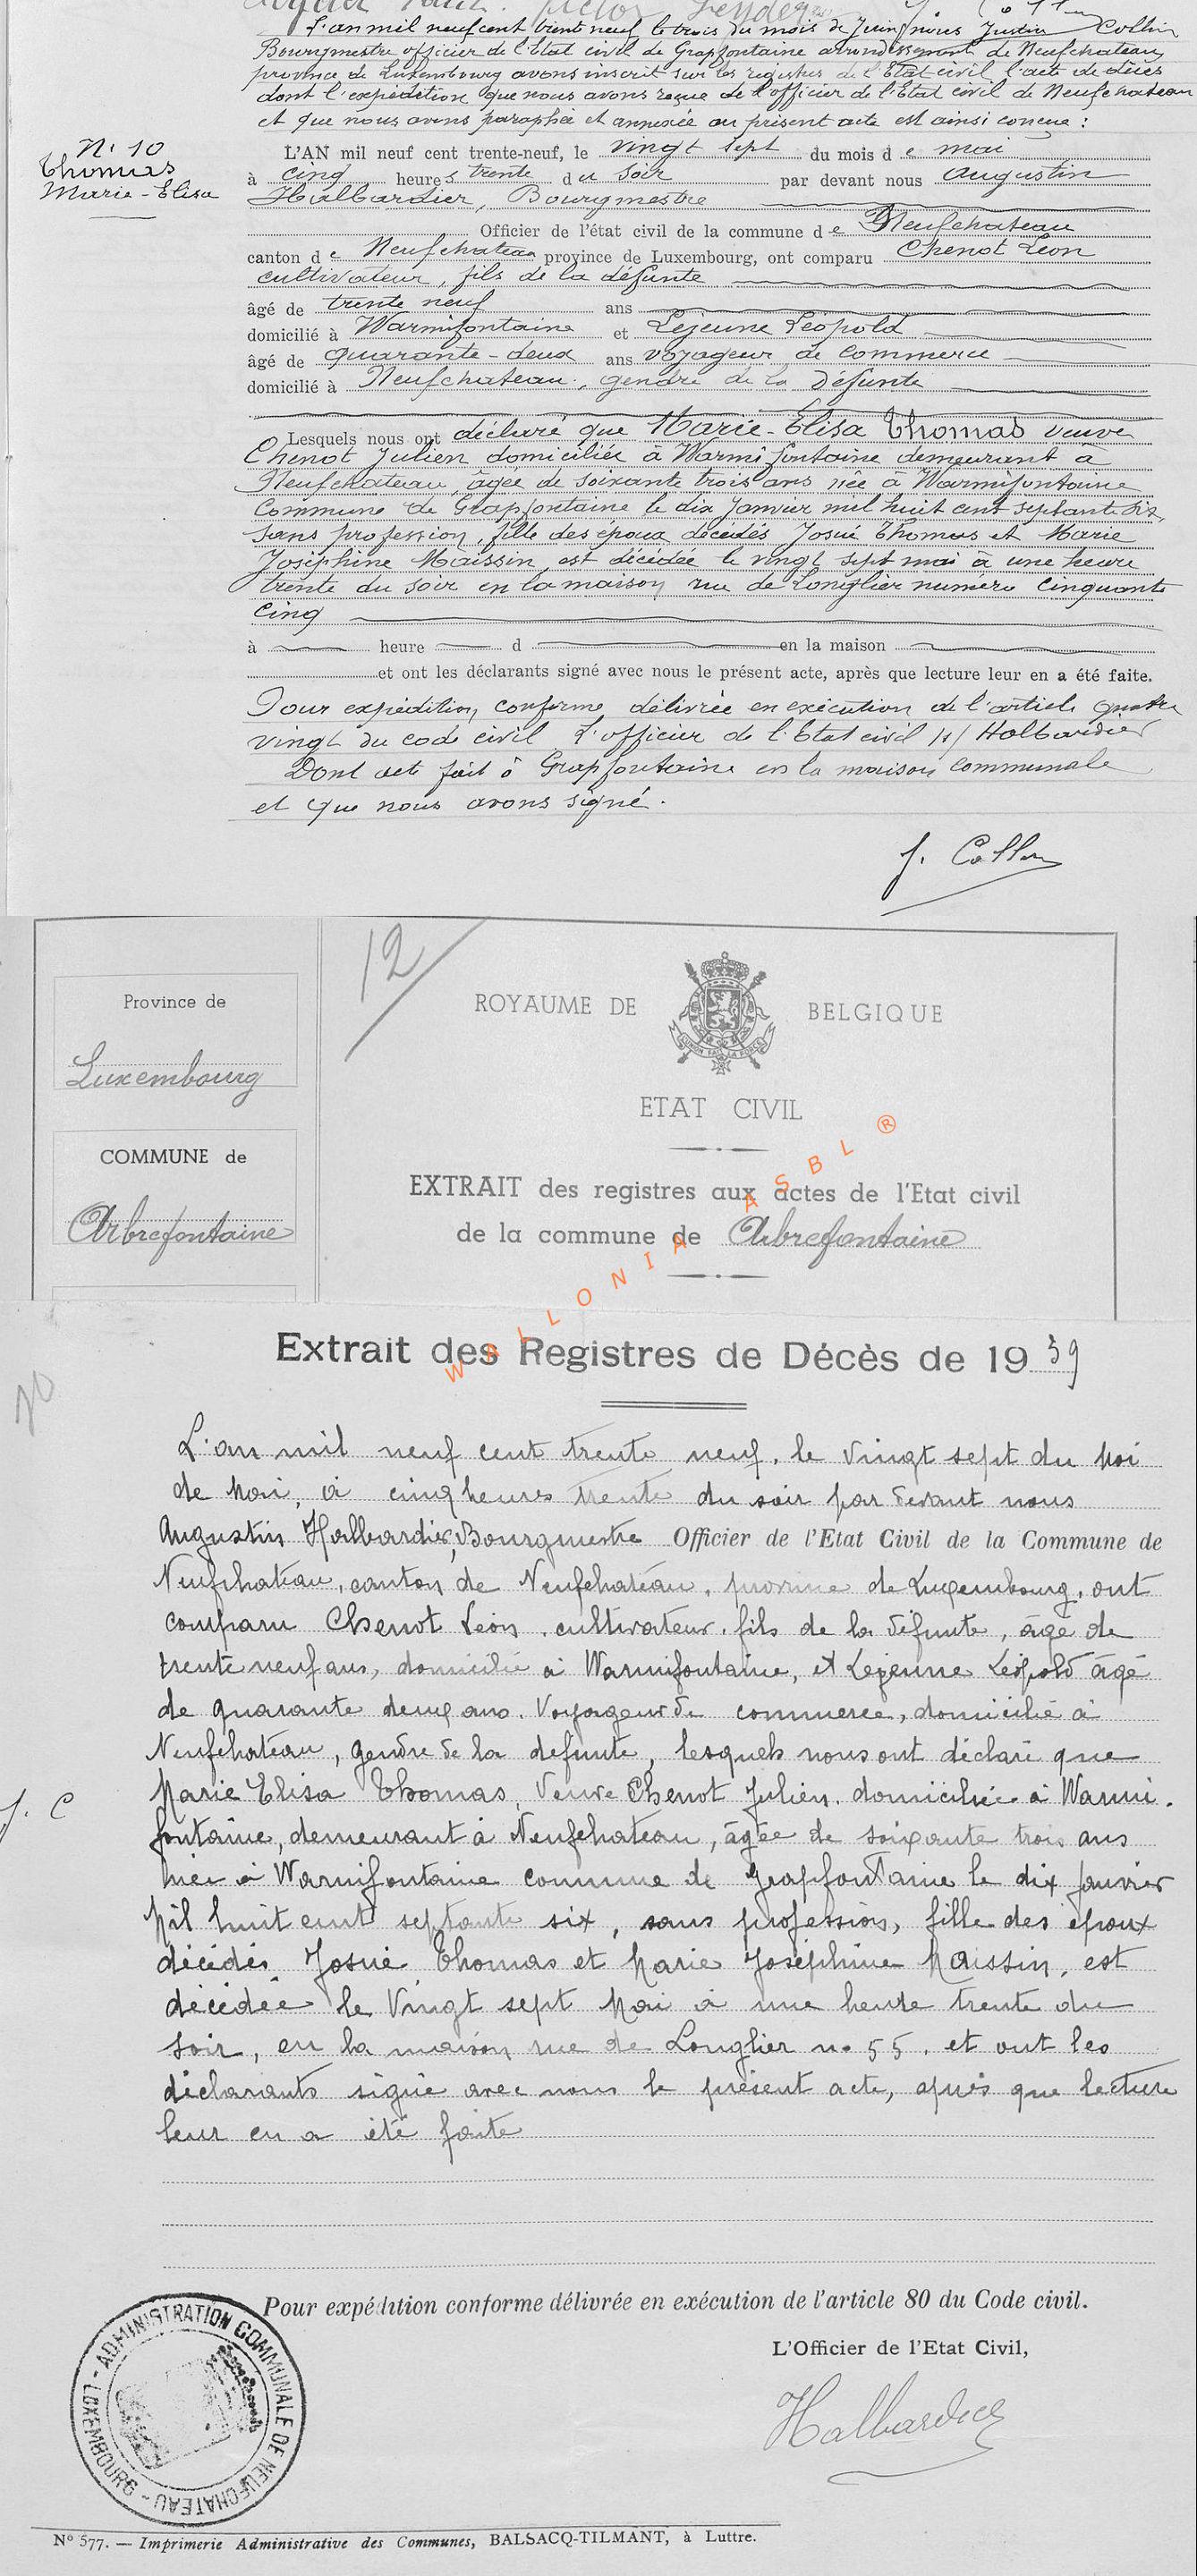 L'an mil neuf cent trente neuf le trois du mois de Juin, nous Justin Collin
Bourgmestre officier de l'Etat civil de Grapfontaine arrondissement de Neufchateau
province de Luxembourg avons inscrit sur les registres de l'Etat civil l'acte de décès
dont l'expédition que nous avons reçue de l'officier de l'Etat civil de Neufchateau
et que nous avons paraphée et annexée au présent acte est ainsi conçue :
N° 10
Thomas
Marie-Elisa
L'AN mil neuf cent trente-neuf, le vingt sept du mois de mai
à cinq heures trente du soir par devant nous Augustin
Halbardier, Bourgmestre
Officier de l'état civil de la commune de Neufchateau
canton de Neufchateau province de Luxembourg, ont comparu Chenot Léon
cultivateur, fils de la défunte
âgé de trente neuf ans
domicilié à Warmifontaine et Lejeune Léopold
âgé de quarante-deux ans voyageur de commerce
domicilié à Neufchateau, gendre de la défunte
Lesquels nous ont déclaré que Marie-Elisa Thomas veuve
Chenot Julien domiciliée à Warmifontaine demeurant à
Neufchateau, âgée de soixante trois ans née à Warmifontaine
Commune de Grapfontaine le dix Janvier mil huit cent septante six,
sans profession, fille des époux décédés Josué Thomas et Marie
Joséphine Maissin, est décédée le vingt sept mai à une heure
trente du soir en la maison rue de Longlier numéro cinquante
cinq
à heure d en la maison
et ont les déclarants signé avec nous le présent acte, après que lecture leur en a été faite.
Pour expédition conforme délivrée en exécution de l'article quatre
vingt du code civil L'officier de l'Etat civil /s/ Halbardier
Dont acte fait à Grapfontaine en la maison communale
et que nous avons signé.
J. Collin
12
Province de
Luxembourg
COMMUNE de
Arbrefontaine
ROYAUME DE BELGIQUE
ETAT CIVIL
EXTRAIT des registres aux actes de l'Etat civil
de la commune de Arbrefontaine
WALLONIA ASBL ®
Extrait des Registres de Décès de 1939
10
L'an mil neuf cent trente neuf, le vingt sept du moi
de mai, à cinq heures trente du soir par devant nous
Augustin Halbardier, Bourgmestre Officier de l'Etat Civil de la Commune de
Neufchateau, canton de Neufchateau, province de Luxembourg, ont
comparu Chenot Léon, cultivateur, fils de la défunte, âgé de
trente neuf ans, domicilié à Warmifontaine, et Lejeune Léopold âgé
de quarante deux ans, Voyageur de commerce, domicilié à
Neufchateau, gendre de la défunte, lesquels nous ont déclaré que
Marie Elisa Thomas, Veuve Chenot Julien, domiciliée à Warmi-
fontaine, demeurant à Neufchateau, âgée de soixante trois ans
née à Warmifontaine commune de Grapfontaine le dix janvier
Mil huit cent septante six, sans profession, fille des époux
décédés Josué Thomas et Marie Joséphine Maissin, est
décédée le Vingt sept Mai à une heure trente du
soir, en la maison rue de Longlier n° 55, et ont les
déclarants signé avec nous le présent acte, après que lecture
leur en a été faite
J. C
Pour expédition conforme délivrée en exécution de l'article 80 du Code civil.
L'Officier de l'Etat Civil,
Halbardier
ADMINISTRATION COMMUNALE DE NEUFCHATEAU - LUXEMBOURG -
N° 577. — Imprimerie Administrative des Communes, BALSACQ-TILMANT, à Luttre.